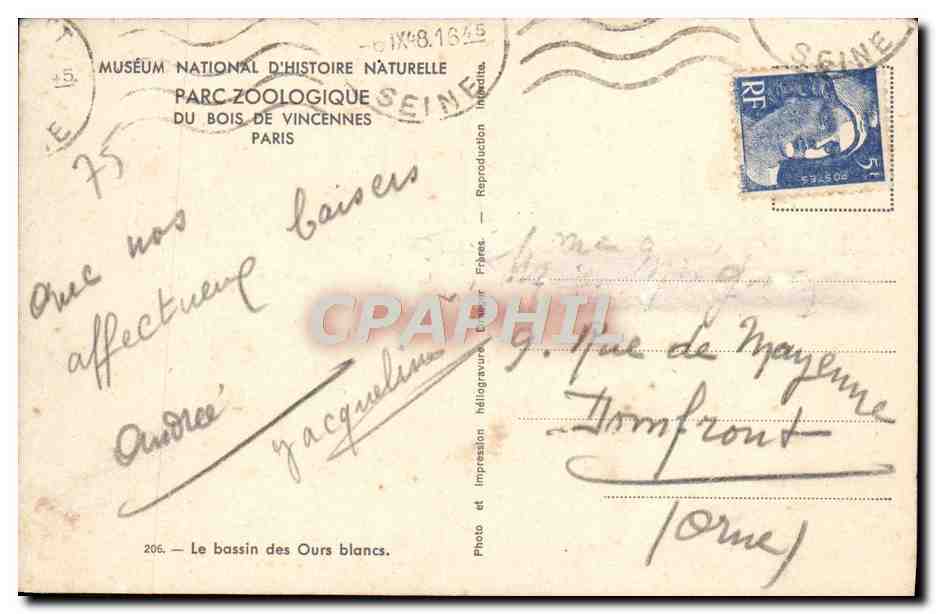 MUSÉUM NATIONAL D'HISTOIRE NATURELLE
PARC ZOOLOGIQUE
DU BOIS DE VINCENNES
PARIS
75
avec nos
affectueux baisers
André
Jacqueline
206. — Le bassin des Ours blancs.
Photo et Impression héliogravure Draeger Frères. — Reproduction Interdite.
IX 48.1645
SEINE
SEINE
45.
RF
POSTES
5f
CPAPHIL
Mme
9. Rue de Mayenne
Domfront
(Orne)